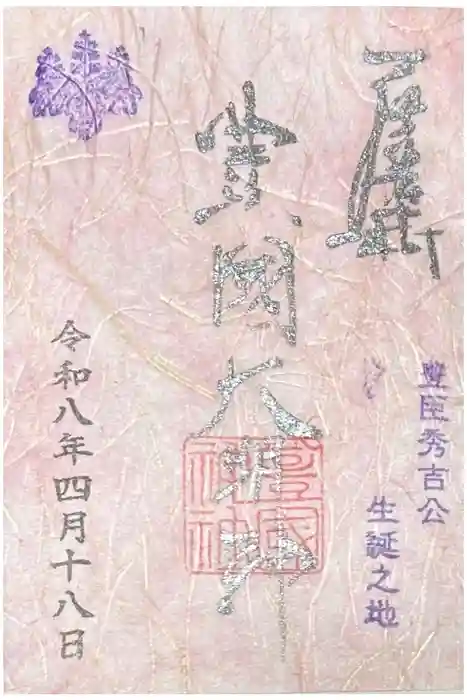 豊國大明神
豊臣秀吉公
生誕之地
豊國神社
令和八年四月十八日